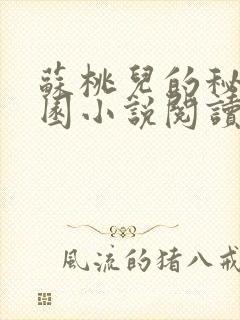 蘇桃兒的秘
園小說閱讀
風流的猪八戒